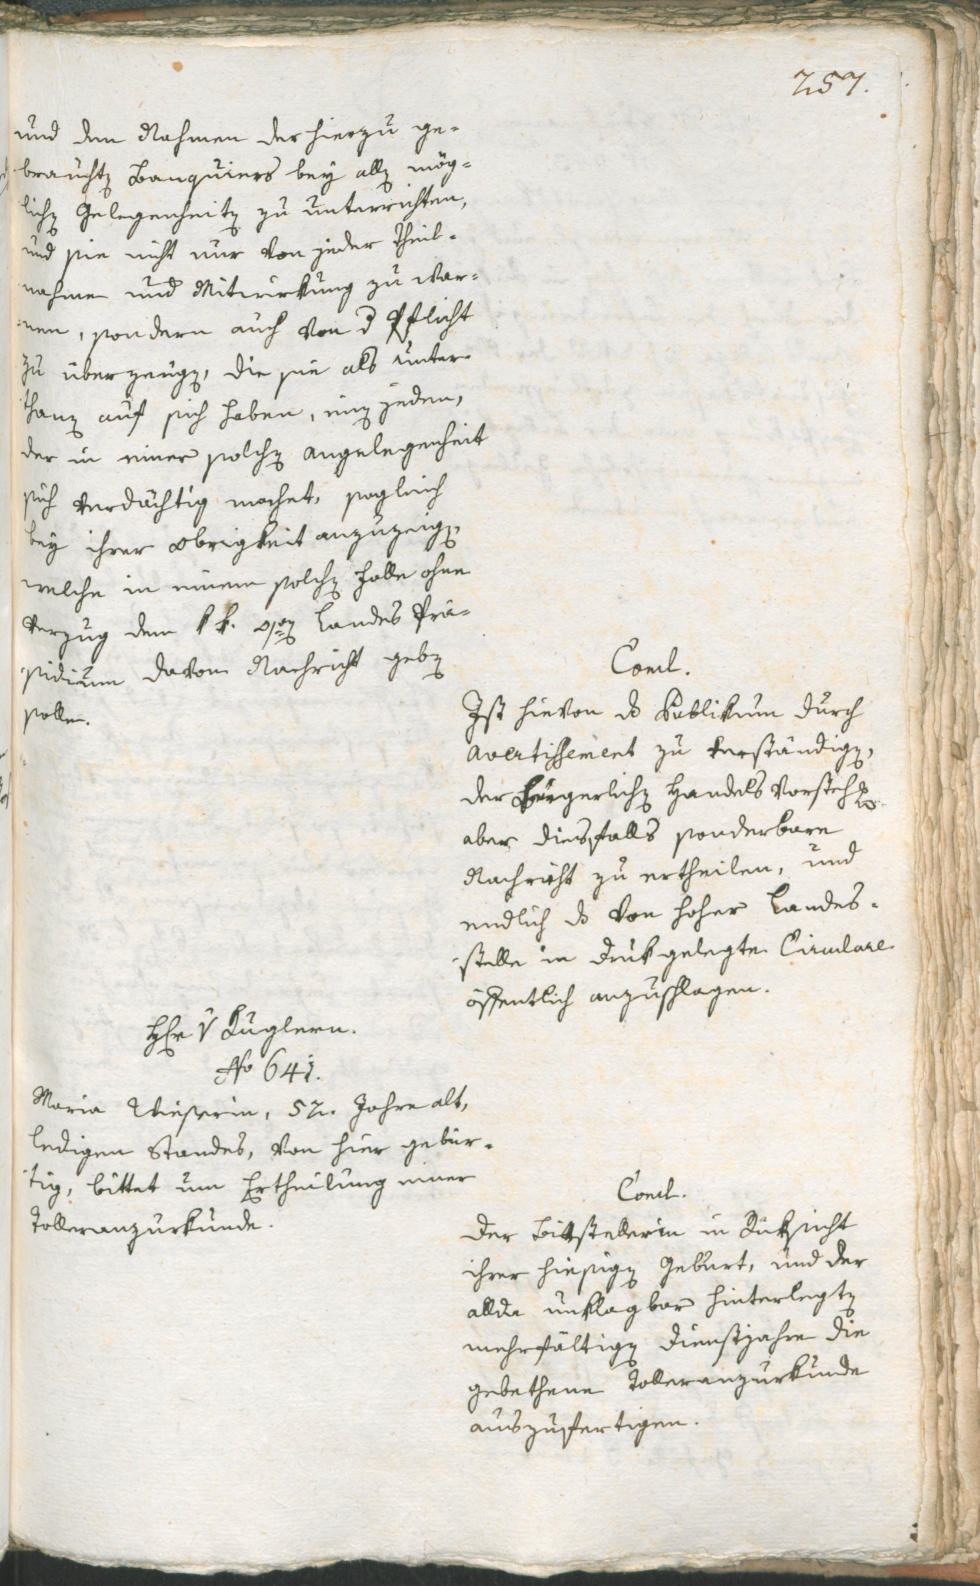 257.
und dem Nahmen der hierzu ge-
brauchten Banquiers bey allen mög-
lichen Gelegenheiten zu unterrichten,
und sie nicht nur von jeder Theil-
nahme und Mitwirkung zu war-
nen, sondern auch von der Pflicht
zu überzeugen, die sie als Unter-
thanen auf sich haben, einen jeden,
der in einer solchen Angelegenheit
sich verdächtig machet, sogleich
bey ihrer Obrigkeit anzuzeigen,
welche in einem solchen Falle ohne
Verzug dem k k. Landes Prä-
sidium davon Nachricht geben
solle.
Concl.
Ist hievon das Publikum durch
Avertissement zu verständigen,
der bürgerlichen Handels Vorstehung
aber diesfalls sonderbare
Nachricht zu ertheilen, und
endlich das von hoher Landes-
stelle in Druk gelegte Circulare
öffentlich anzuschlagen.
Hr v Kuglern.
No 641.
Maria Wieserin, 52. Jahre alt,
ledigen Standes, von hier gebür-
tig, bittet um Ertheilung einer
Tolleranzurkunde.
Concl.
Der Bittstellerin in Rüksicht
ihrer hiesigen Geburt, und der
allda unklagbar hinterlegten
mehrfältigen Dienstjahre die
gebethene Tolleranzurkunde
auszufertigen.